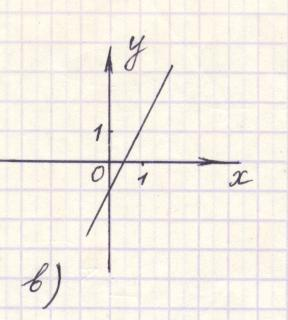 y
1
0 1 x
в)